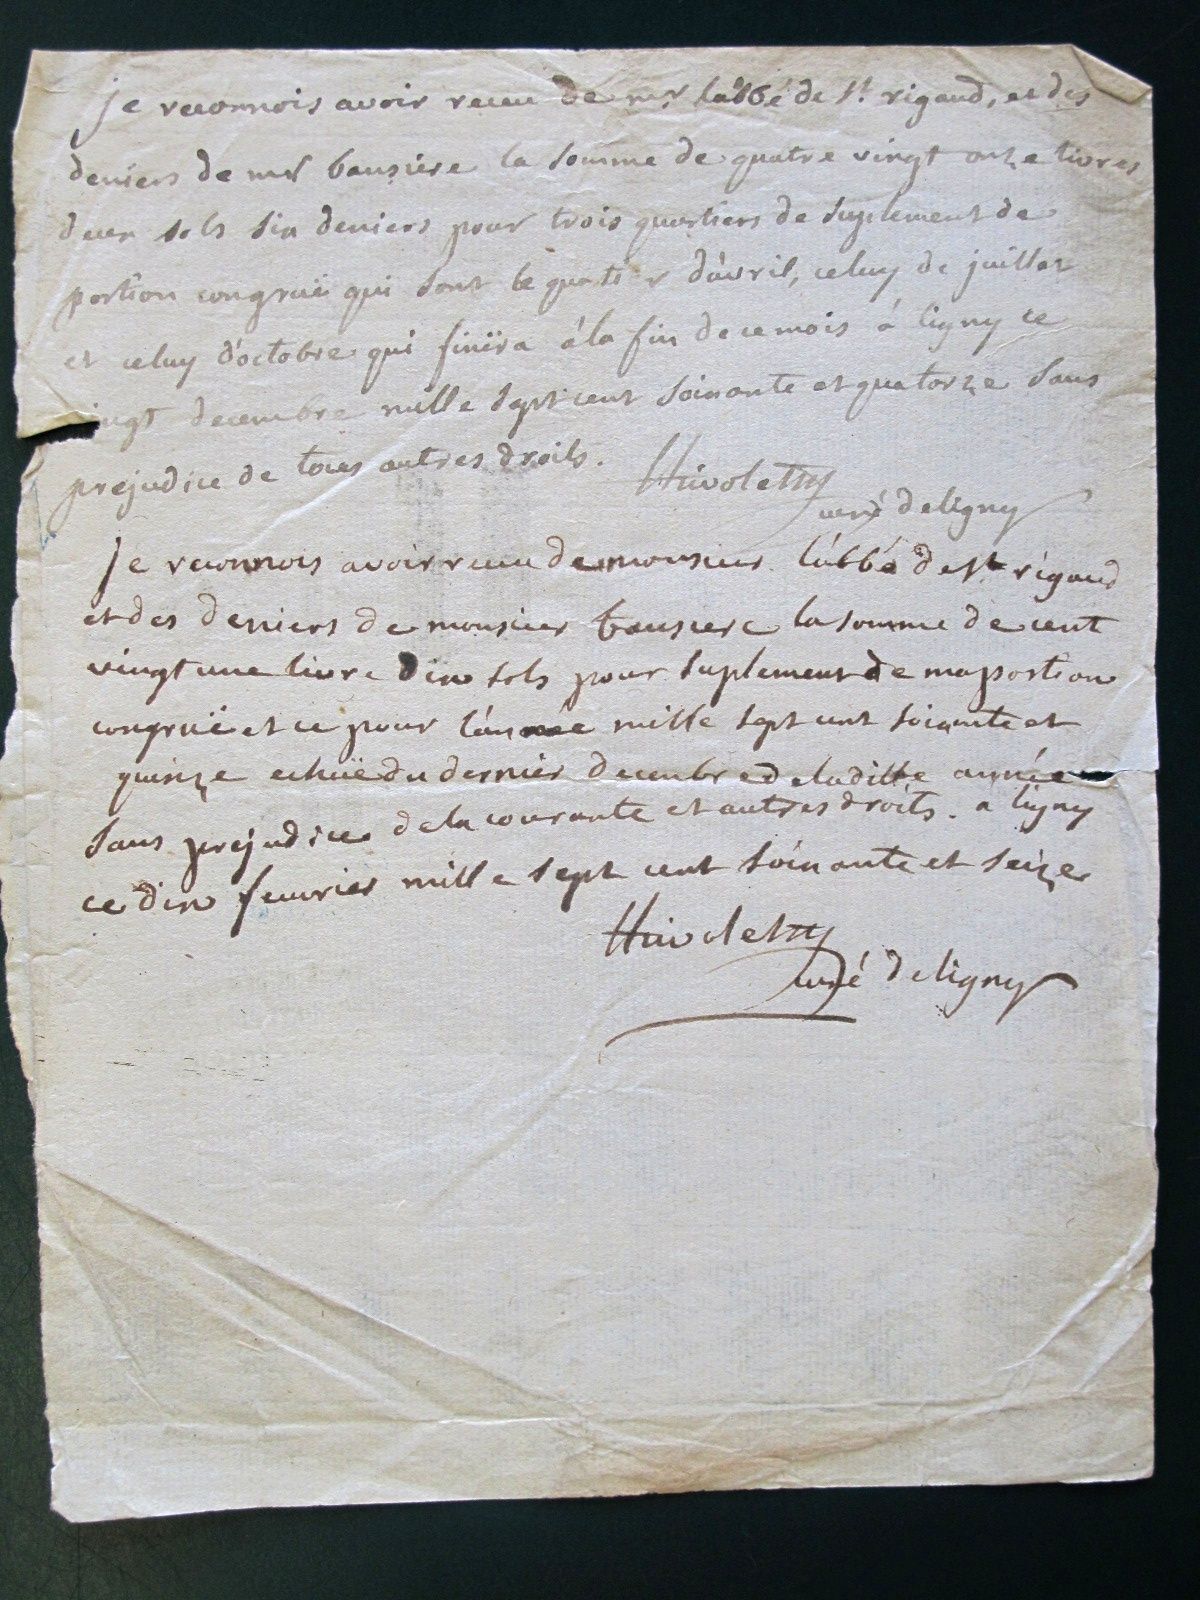 je reconnois avoir receu de mr labbé de st rigaud, et des
deniers de mr bausiere la somme de quatre vingt onze livres
deux sols six deniers pour trois quartiers de suplement de
portion congruë qui sont le quartier d'avril, celuy de juillet
et celuy d'octobre qui finira á la fin de ce mois á ligny ce
vingt decembre mille sept cent soixante et quatorze sans
prejudice de tous autres droits.
curé de ligny
je reconnois avoir receu de monsieur l'abbé de st rigaud
et des deniers de monsieur bausiere la somme de cent
vingt une livre dix sols pour suplement de ma portion
congruë et ce pour l'année mille sept cent soixante et
quinze echuë du dernier decembre de laditte année
sans prejudice de la courante et autres droits. a ligny
ce dix feuvrier mille sept cent soixante et seize
curé de ligny